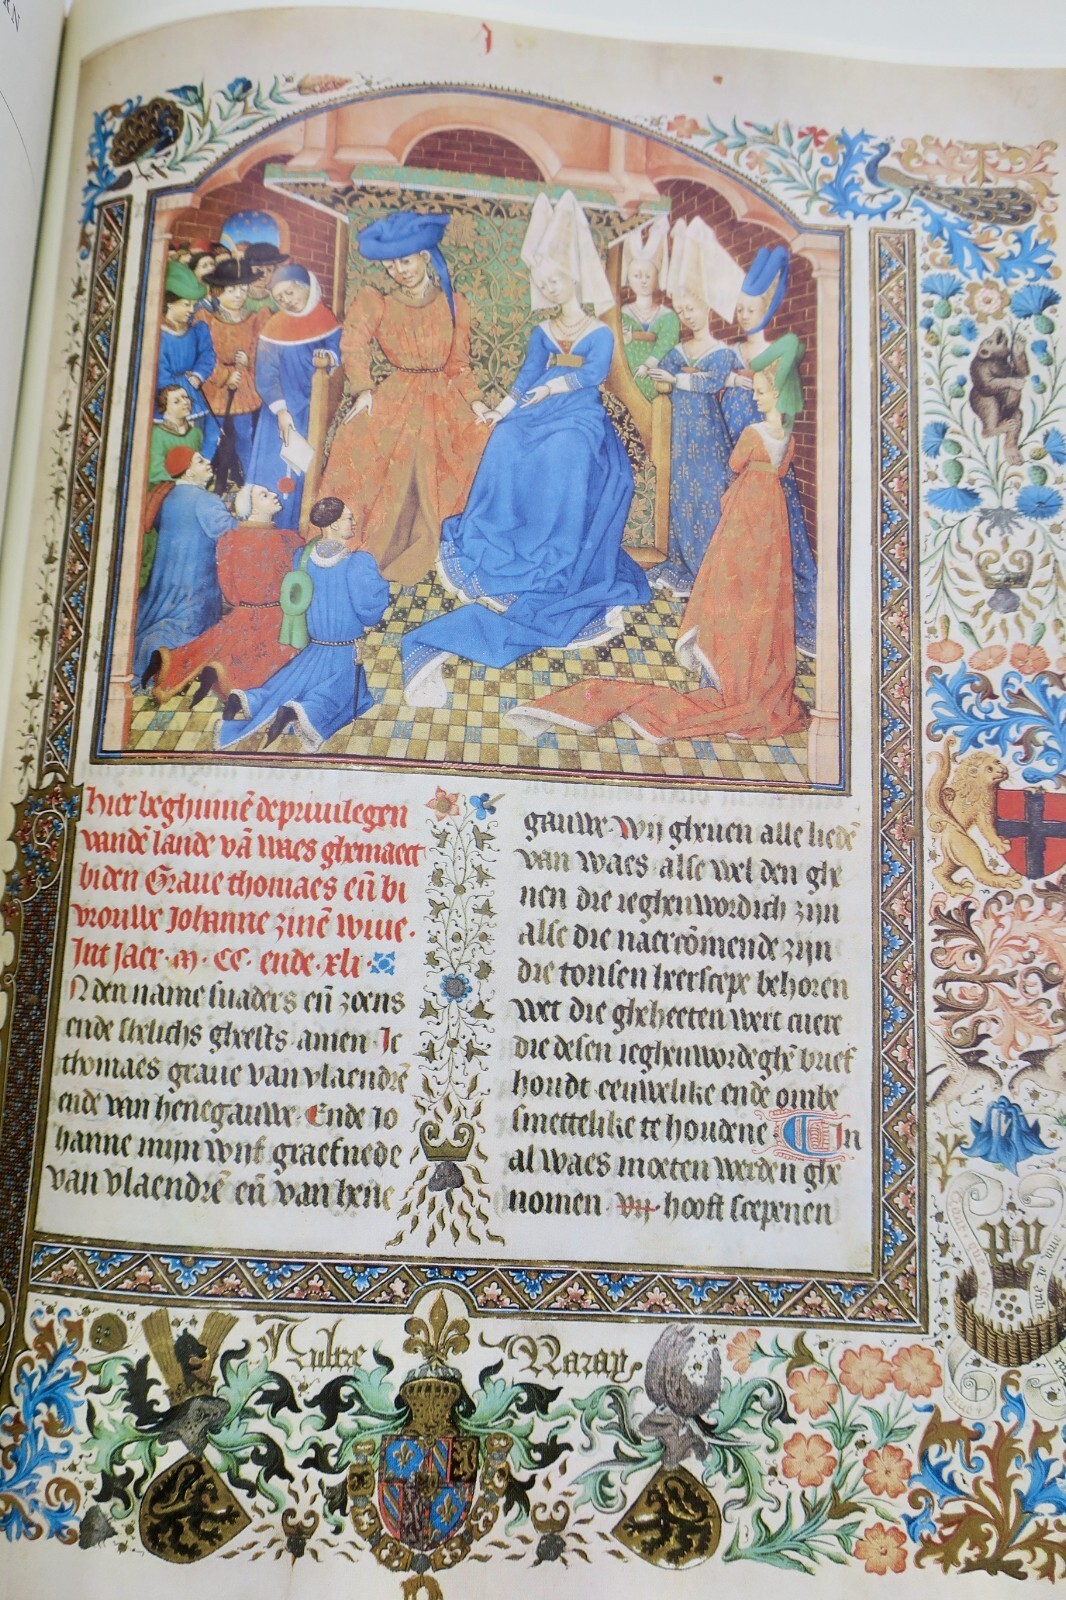 Hier beghinnē de priuilegen
vandē lande vā waes ghemaect
biden Graue thomaes eñ bi
vrouwe Johanne zinē wiue.
Int Jaer · m · CC · ende · xli ·
N den name suaders eñ zoens
ende shelichs gheests amen · Ic
thomaes graue van vlaendrē
ende van henegauwe. Ende Jo
hanne mijn wijf graefnede
van vlaendrē eñ van hene
gauwe. Wij gheuen alle liedē
van waes alse wel den ghe
nen die ieghenwordich zijn
alse die naercōmende zijn
die tonsen heerscepe behoren
wet die gheheeten wert cuere
die desen ieghenwordeghē brief
houdt eeuwelike ende ombe
smettelike te houdene · In
al waes moeten werden ghe
nomen · vij · hooft scepenen
Aultre Naray